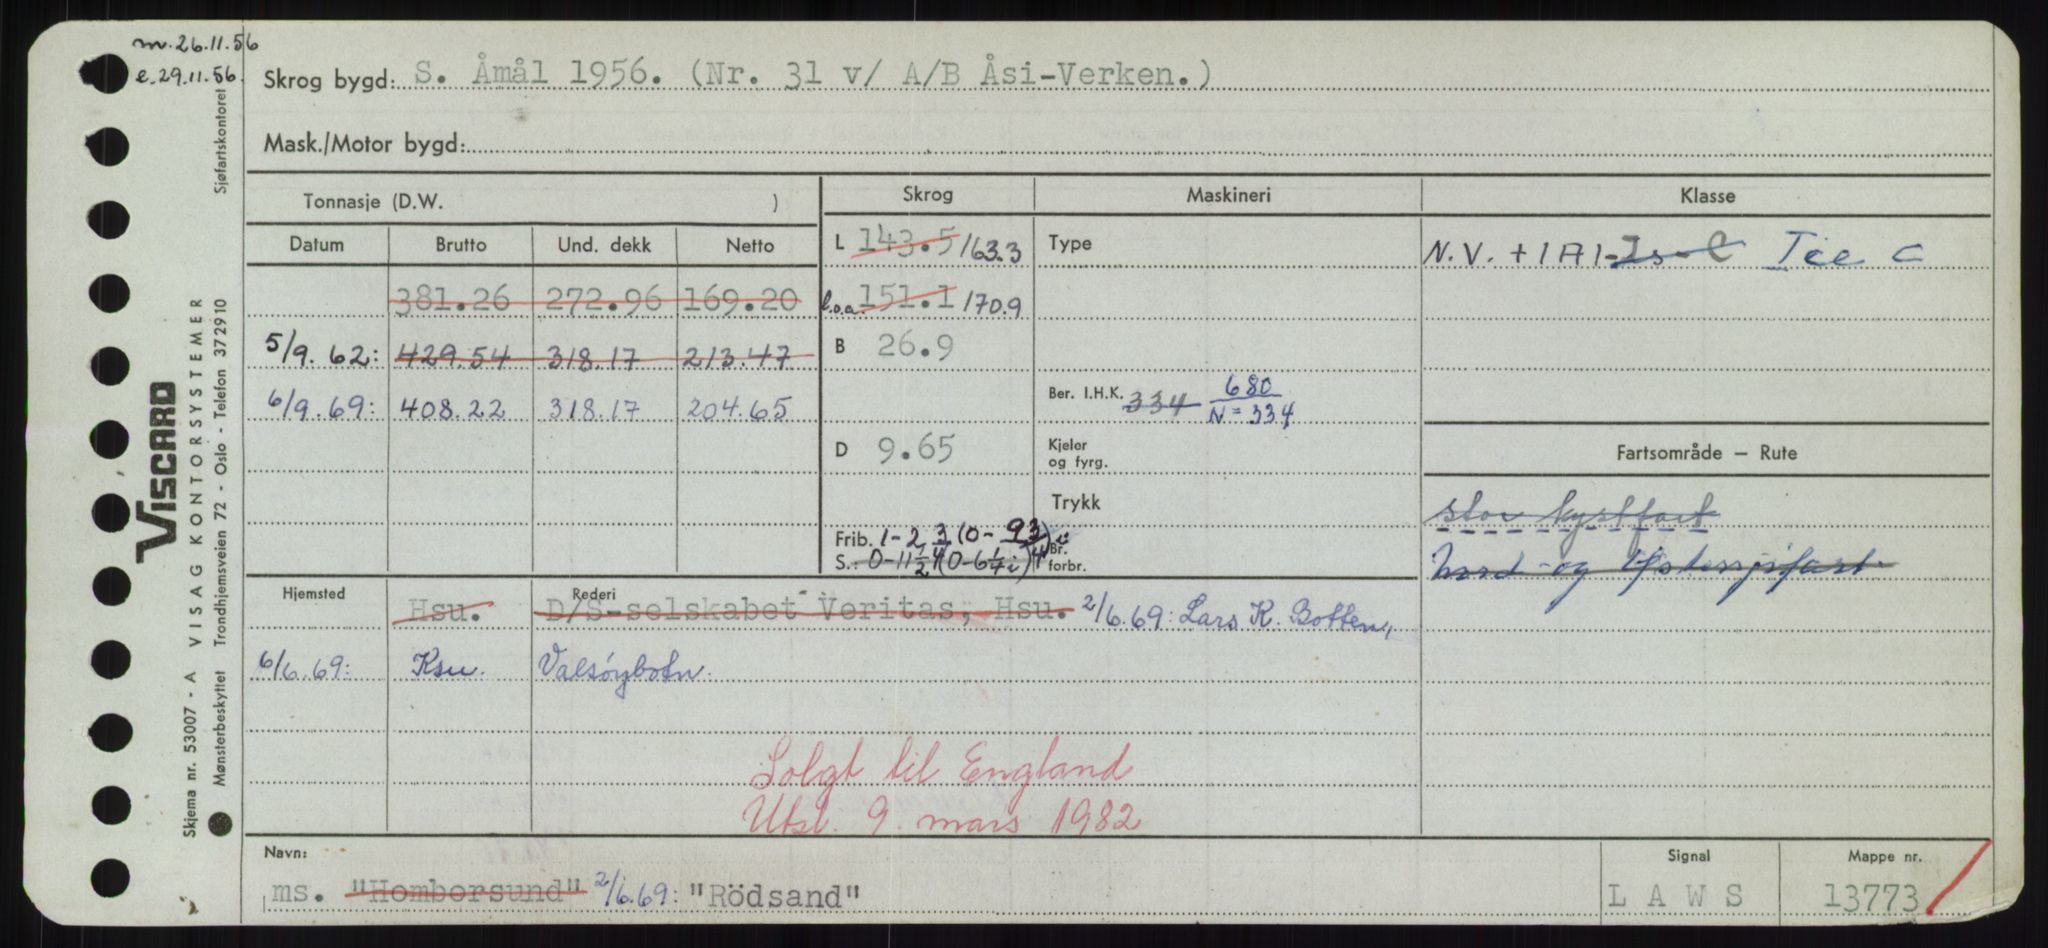 m. 26.11.56
e. 29.11.56.
Skrog bygd: S. Åmål 1956. (Nr. 31 v/ A/B Åsi-Verken.)
Mask./Motor bygd:
Sjøfartskontoret
Viscard
VISAG KONTORSYSTEMER
Trondhjemsveien 72 - Oslo - Telefon 372910
Skjema nr. 53007 - A
Mønsterbeskyttet
Tonnasje (D.W. )
Skrog Maskineri Klasse
Datum Brutto Und. dekk Netto
L 143.5 /163.3 Type N.V. + 1A1-Is-C Ice C
381.26 272.96 169.20 l.o.a. 151.1 170.9
5/9.62: 429.54 318.17 213.47 B 26.9
6/9.69: 408.22 318.17 204.65 Ber. I.H.K. 334 680
N = 334
D 9.65 Kjeler
og fyrg.
Fartsområde – Rute
Trykk stor kystfart
Frib. 1-2 3/4 (0-9 3/4)i
S.: 0-11 1/2 (0-6 1/7 i) Br.
forbr. Nord-og Østersjøfart.
Hjemsted Rederi
Hsu. D/S-selskabet Veritas, Hsu. 2/6.69: Lars K. Botten,
6/6.69: Ksu. Valsøybotn.
Solgt til England
Utsl. 9. mars 1982
Navn: Signal Mappe nr.
ms. "Homborsund" 2/6.69: "Rödsand" L A W S 13773